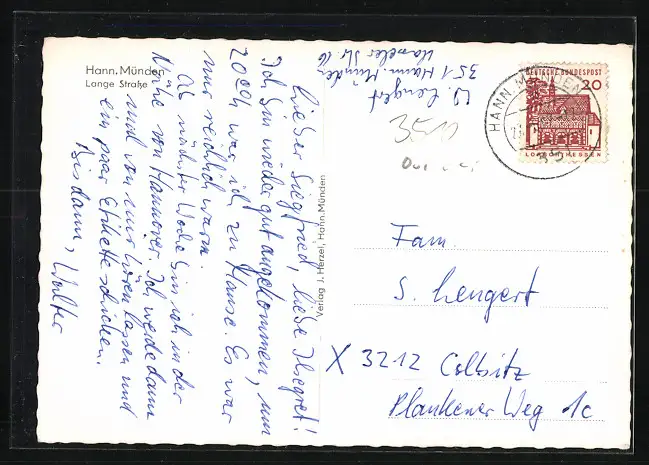 Hann. Münden
Lange Straße
W. Lengert
351 Hann. Münden
Lieber Siegfried, liebe Ilsegret!
Ich bin wieder gut angekommen, um
20 Uhr war ich zu Hause. Es war
nur reichlich warm.
Ab nächster Woche bin ich in der
Nähe von Hannover. Ich werde dann
mal von mir hören lassen und
ein paar Etikette schicken.
Bis dann, Walter
Verlag J. Herzel, Hann. Münden
DEUTSCHE BUNDESPOST
20
LORSCH/HESSEN
HANN. MÜNDEN
3510
Fam.
S. Lengert
X 3212 Colbitz
Plankener Weg 1c